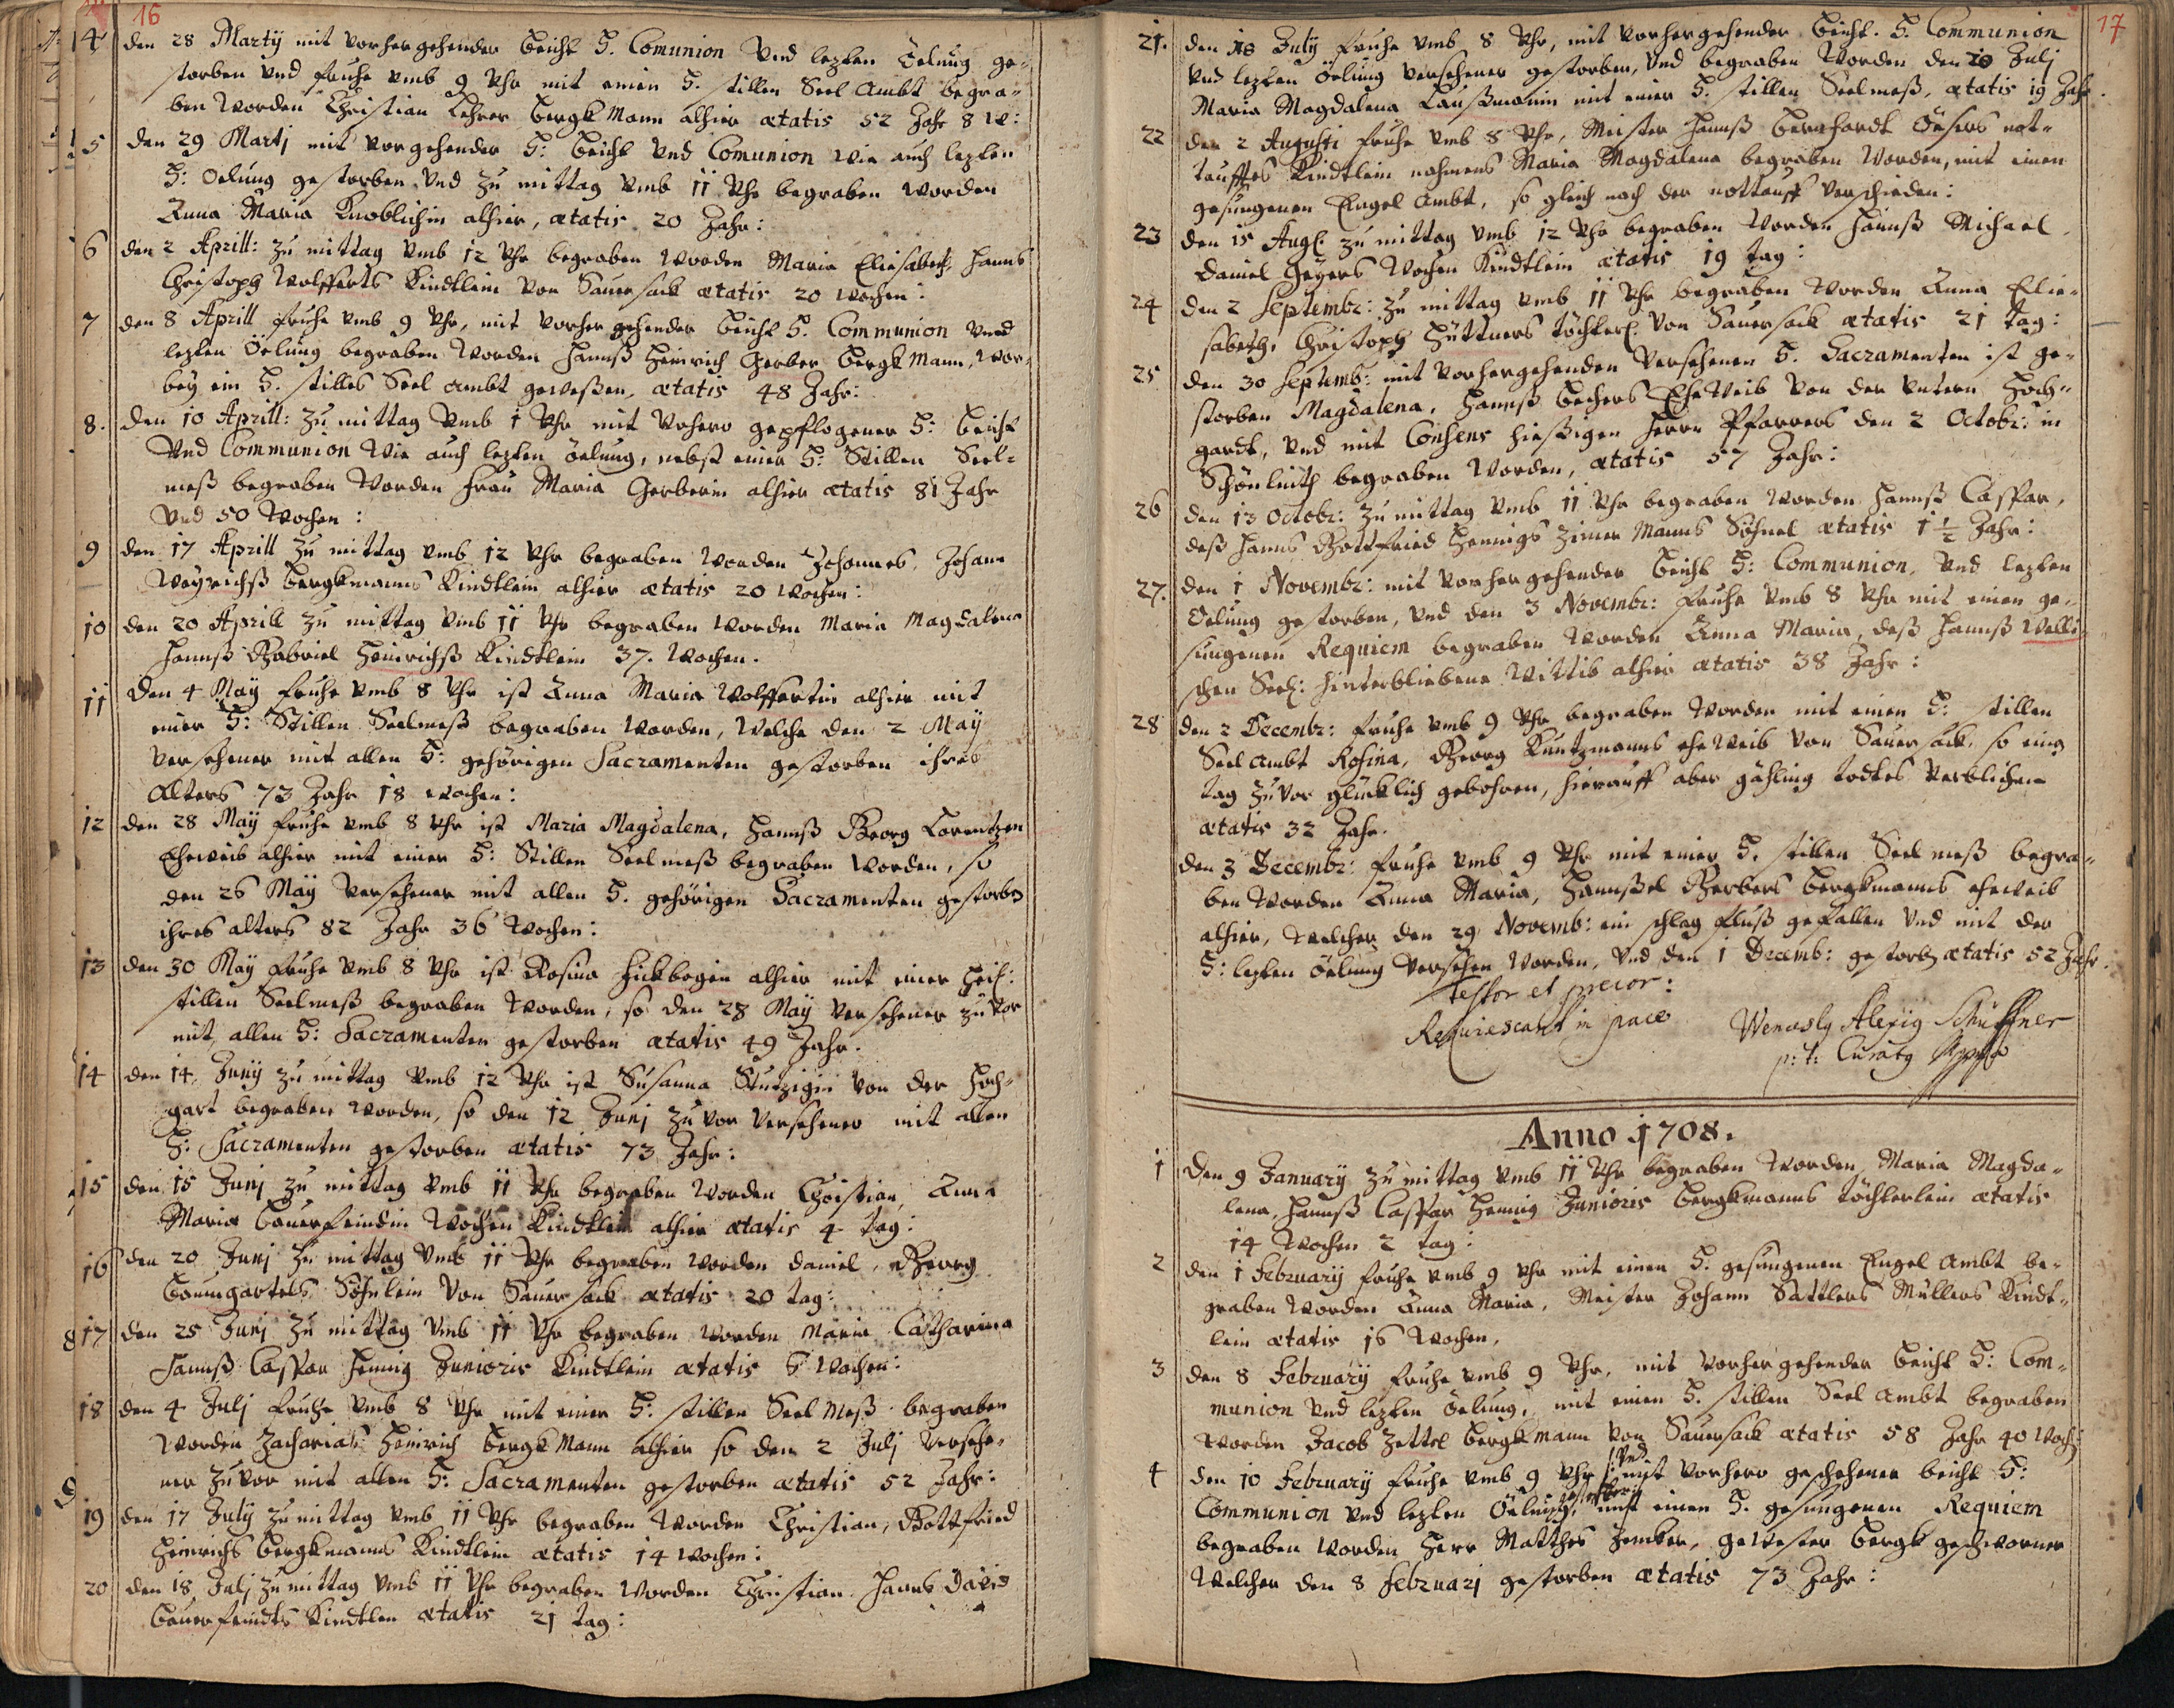 16
4 den 28 Martÿ mit vorhergehender Beicht H. Comunion vnd lezten Öelung ge-
storben vnd fruhe vmb 9 Vhr mit einen H. stillen Seel Ambt begra-
ben worden Christian Lehrer Bergkmann alhier ætatis 52 Jahr 8 W:
5 den 29 Martj mit vorgehender H: Beicht vnd Comunion wie auch lezten
H: Oelung gestorben vnd zu mittag vmb 11 Vhr begraben worden
Anna Maria Knoblichin alhier, ætatis 20 Jahr:
6 den 2 Aprill: zu mittag vmb 12 Vhr begraben worden Maria Eliesabeth, Hanns
Christoph Wolfferts Kindtlein von Sauersack ætatis 20 wochen:
7 den 8 Aprill fruhe vmb 9 Vhr, mit vorhergehender Beicht H. Communion vnnd
lezten Öelung begraben worden Hannß Heinrich Gerber Bergkmann, wor-
beÿ ein H. stilles Seel Ambt geweßen, ætatis 48 Jahr:
8. den 10 Aprill: zu mittag vmb 1 Vhr mit vohero gepflogener H: Beicht
vnd Communion wie auch lezten öelung, nebst einer H: Stillen Seel-
meß begraben worden Frau Maria Gerberin alhier ætatis 81 Jahr
vnd 50 wochen:
9 den 17 Aprill zu mittag vmb 12 Vhr begraben worden Johannes, Johann
Weÿrichß Bergkmanns Kindtlein alhier ætatis 20 wochen:
10 den 20 Aprill zu mittag vmb 11 Vhr begraben worden Maria Magdalena
Hannß Gabriel Heinrichß Kindtlein 37. wochen.
11 den 4 Maÿ fruhe vmb 8 Vhr ist Anna Maria Wolffertin alhier mit
einer H: Stillen Seelmeß begraben worden, welche den 2 Maÿ
versehener mit allen H: gehörigen Sacramenten gestorben ihres
Alters 73 Jahr 18 wochen:
12 den 28 Maÿ fruhe vmb 8 Vhr ist Maria Magdalena, Hannß Georg Lorentzen
Eheweib alhier mit einer H: Stillen Seelmeß begraben worden, so
den 26 Maÿ versehener mit allen H. gehörigen Sacramenten gestorben
ihres alters 82 Jahr 36 wochen:
13 den 30 Maÿ fruhe vmb 8 Vhr ist Rosina Hickbogin alhier mit einer Heil:
stillen Seelmeß begraben worden, so den 28 Maÿ versehener zuvor
mit allen H: Sacramenten gestorben ætatis 49 Jahr.
14 den 14 Junÿ zu mittag vmb 12 Vhr ist Susanna Stutzigin von der Hoch-
gart begraben worden, so den 12 Junj zuvor versehener mit allen
H: Sacramenten gestorben ætatis 73 Jahr:
15 den 15 Junj zu mittag vmb 11 Vhr begraben worden Christian, Anna
Maria Bauerfeindin wochen Kindtlein alhier ætatis 4 tag:
16 den 20 Junj zu mittag vmb 11 Vhr begraben worden Daniel, Georg
Baumgartels Söhnlein von Sauersack ætatis 20 tag:
17 den 25 Junj zu mittag vmb 11 Vhr begraben worden Maria Catharina
Hannß Caspar Hennig Junioris Kindtlein ætatis 6 wochen:
18 den 4 Julj fruhe vmb 8 Vhr mit einer H: stillen Seelmeß begraben
worden Zacharias Heinrich Bergkmann alhier so den 2 Julj versehe-
ner zuvor mit allen H: Sacramenten gestorben ætatis 52 Jahr:
19 den 17 Julÿ zu mittag vmb 11 Vhr begraben worden Christian, Gottfried
Heinrichs Bergkmanns Kindtlein ætatis 14 wochen:
20 den 18 Julj zu mittag vmb 11 Vhr begraben worden Christian Hanns David
Bauerfeindts Kindtlen ætatis 21 tag:
17
21. den 18 Julÿ fruhe vmb 8 Vhr, mit vorhergehender Beicht. H. Communion
vnd lezten Öelung versehener gestorben, vnd begraben worden den 20 Julj
Maria Magdalena Laußmanin mit einer H: stillen Seelmeß, ætatis 19 Jahr.
22 den 2 Augusti fruhe vmb 8 Vhr, Meister Hannß Bernhardt Öesers not-
tauffes Kindtlein nahmens Maria Magdalena begraben worden, mit einen
gesungenen Engel Ambt, so gleich nach der nottauff verschieden:
23 den 15 Aug: zu mittag vmb 12 Vhr begraben worden Hannß Michael,
Daniel Geÿers wochen Kindtlein ætatis 19 tag:
24 den 2 Septembr: zu mittag vmb 11 Vhr begraben worden Anna Elie-
sabeth, Christoph Hüttners töchterl: von Sauersack ætatis 21 tag:
25 den 30 Septemb: mit vorhergehenden versehenen H. Sacramenten ist ge-
storben Magdalena, Hannß Bechers EheWeib von der vntern Hoch-
gardt, vnd mit Consens hießigen Herrn Pfarrers den 2 Octobr: in
Schönlinth begraben worden, ætatis 57 Jahr:
26 den 13 Octobr: zu mittag vmb 11 Vhr begraben worden Hannß Caspar,
deß Hanns Gottfried Hennigs Zimer Manns Söhnel ætatis 1 1/2 Jahr:
27. den 1 Novembr: mit vorhergehender Beicht H: Communion, vnd lezten
Oelung gestorben, vnd den 3 Novembr: fruhe vmb 8 Vhr mit einen ge-
sungenen Requiem begraben worden Anna Maria, deß Hannß Welli-
schen Seel: hinterbliebene Wittib alhier ætatis 38 Jahr:
28 den 2 Decembr: fruhe vmb 9 Vhr begraben worden mit einen H: stillen
Seel Ambt Rosina, Georg Kuntzmanns eheweib von Sauersack, so eing
tag zuvor glücklich gebohren, hierauff aber gähling todtes verblichen
ætatis 32 Jahr.
den 3 Decembr: fruhe vmb 9 Vhr mit einer H. stillen Seelmeß begra-
ben worden Anna Maria, Hannßel Gerbers Bergkmanns eheweib
alhier, welcher den 29 Novemb: ein schlag fluß gefallen vnd mit der
H: lezten öelung versehen worden, vnd den 1 Decemb: gestorben ætatis 52 Jahr.
testor et precor:
Requiescant in pace
Wenceslg Alexig Schüffner
p: t: Curatg
Anno 1708.
1 Den 9 Januarÿ zu mittag vmb 11 Vhr begraben worden Maria Magda-
lena, Hannß Caspar Hennig Junioris Bergkmanns töchterlein ætatis
14 wochen 2 tag:
2 den 1 Februarÿ fruhe vmb 9 Vhr mit einen H. gesungenen Engel Ambt be-
graben worden Anna Maria, Meister Johann Sattlers Müllers Kindt-
lein ætatis 16 wochen,
3 den 8 Februarÿ fruhe vmb 9 Vhr, mit vorhergehender Beicht H: Com-
munion vnd lezten Öelung, mit einen H. stillen Seel Ambt begraben
worden Jacob Zettel Bergkmann von Sauersack ætatis 58 Jahr 40 woch:
4 den 10 Februarÿ fruhe vmb 9 Vhr mit vorhero geschehener beicht H:
Communion vnd lezten Öelung, mit einen H. gesungenen Requiem
begraben worden Herr Matthes Zenker, gewester Bergkgeschworner
welcher den 8 Februarj gestorben ætatis 73 Jahr: